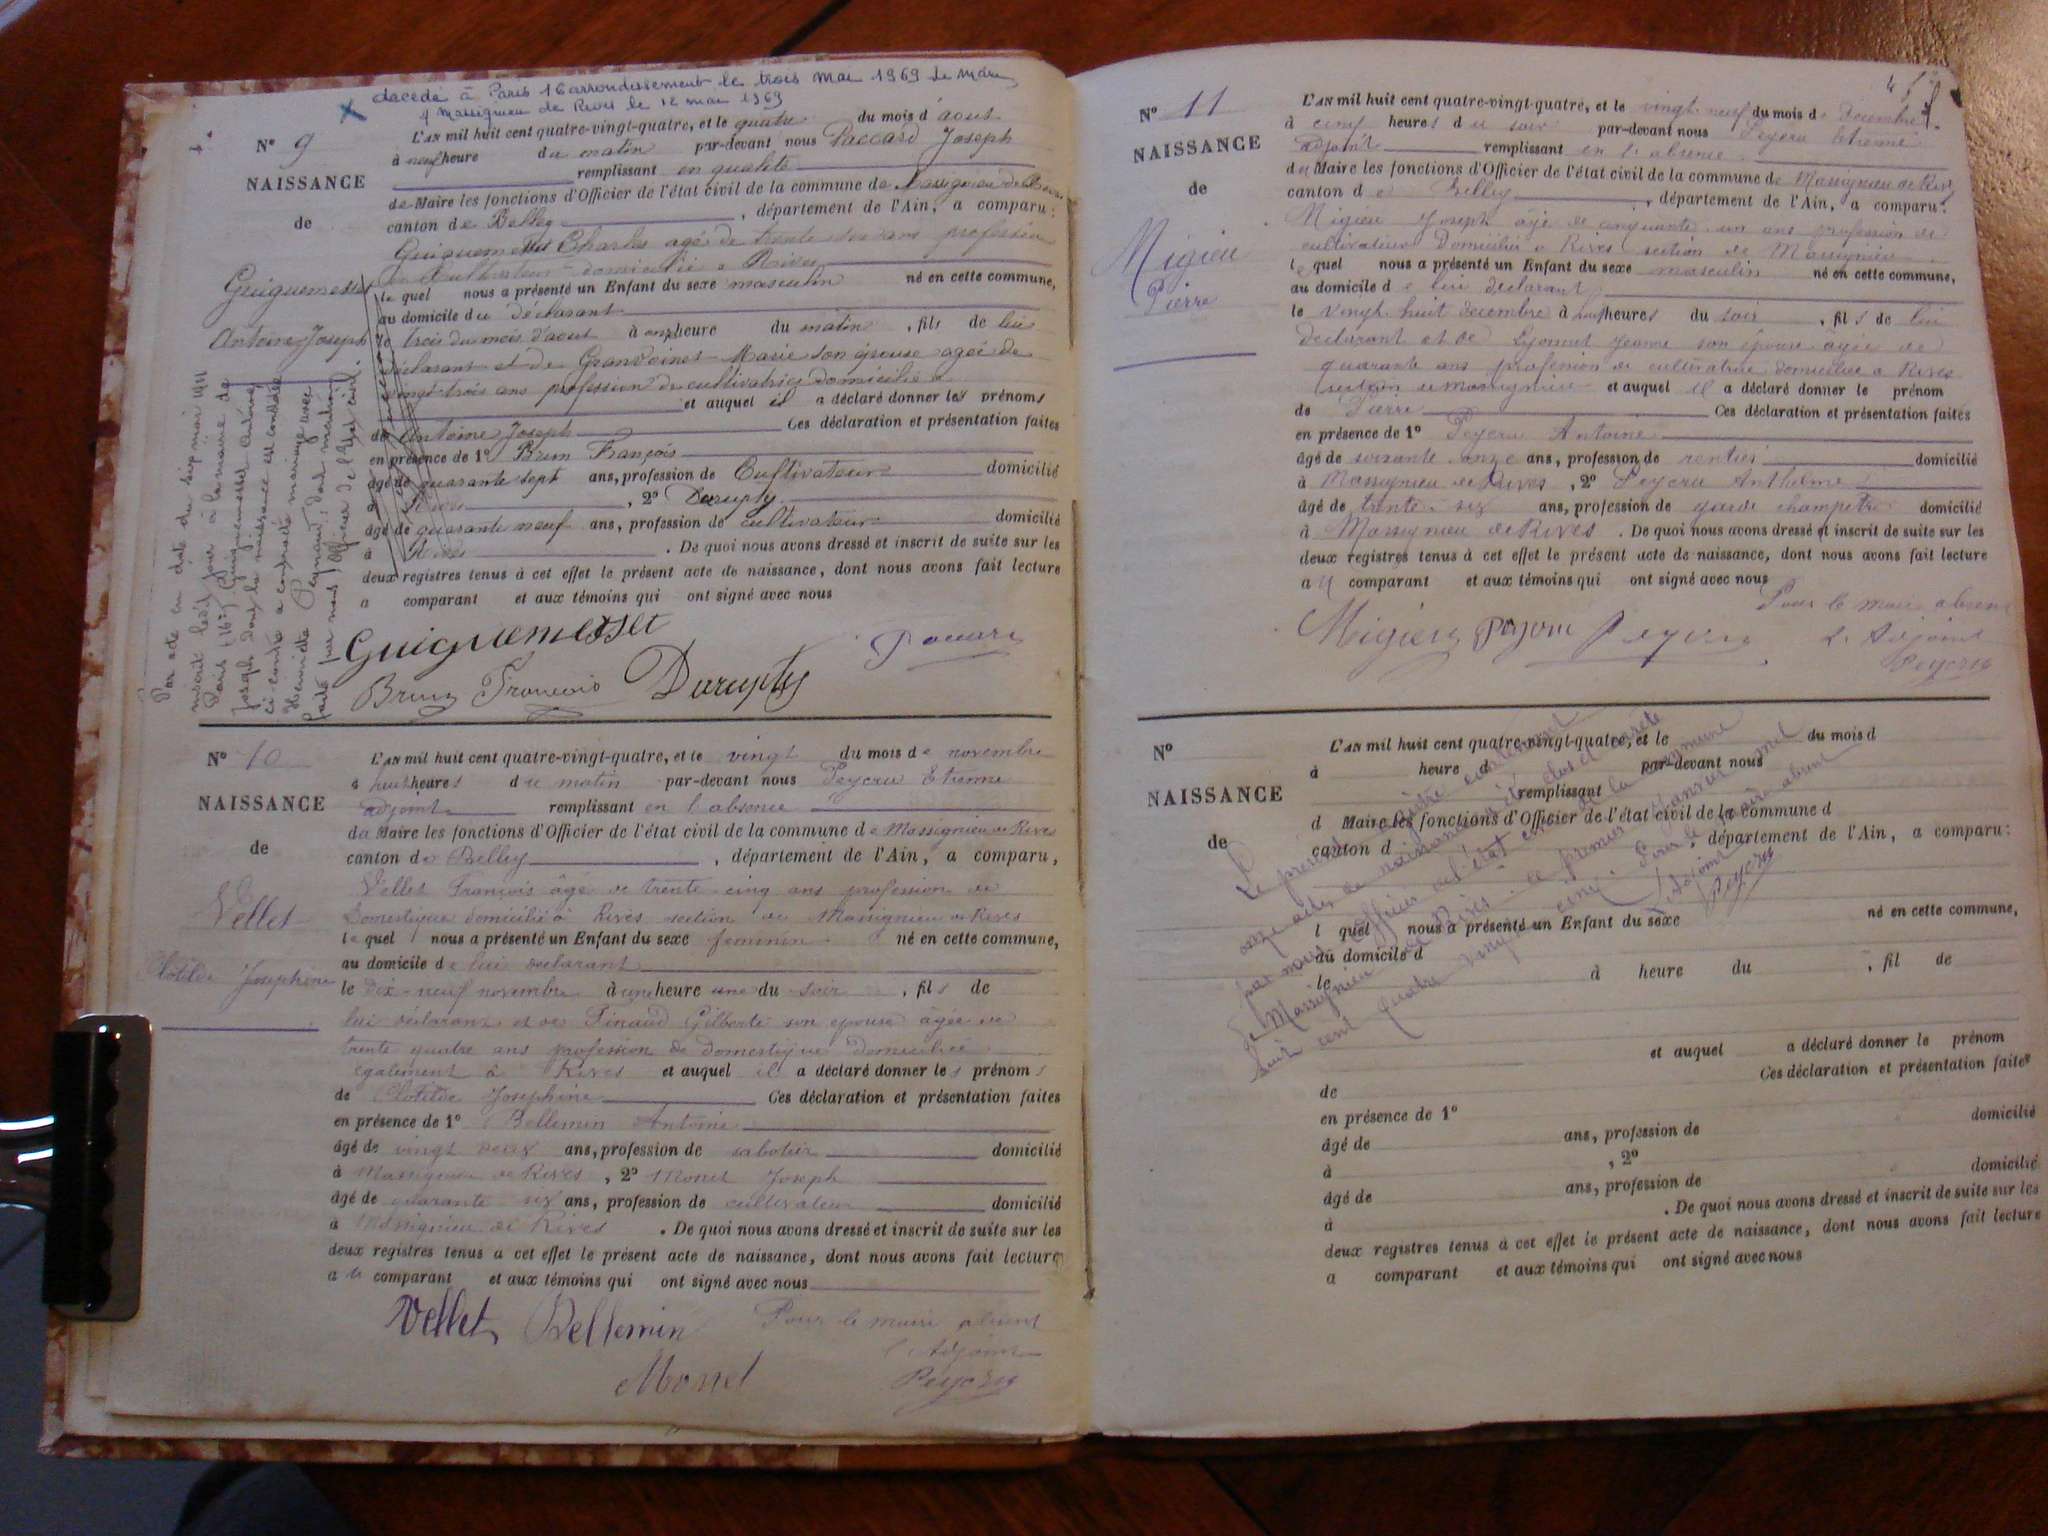 décédé à Paris 16 arrondissement le trois mai 1969
Massignieu de Rives le 12 mai 1969
N° 9
NAISSANCE
de
Guiguemesset
Antoine Joseph
L'AN mil huit cent quatre-vingt-quatre, et le quatre du mois d'aout
à neuf heure du matin par-devant nous Paccard Joseph
remplissant en qualité
de Maire les fonctions d'Officier de l'état civil de la commune de Massignieu de Rives
canton de Belley, département de l'Ain, a comparu:
Guiguemesset Charles agé de trente ans profession
Cultivateur domicilié a Rives
lequel nous a présenté un Enfant du sexe masculin né en cette commune,
au domicile du déclarant
le trois du mois d'aout à onze heure du matin, fils de lui
déclarant et de Marie son épouse agée de
vingt-trois ans profession de cultivatrice domicilié a
et auquel il a déclaré donner les prénoms
de Antoine Joseph Ces déclaration et présentation faites
en présence de 1° Brun François
âgé de quarante sept ans, profession de Cultivateur domicilié
à Rives, 2° Durupty
âgé de quarante neuf ans, profession de cultivateur domicilié
à Rives. De quoi nous avons dressé et inscrit de suite sur les
deux registres tenus à cet effet le présent acte de naissance, dont nous avons fait lecture
a comparant et aux témoins qui ont signé avec nous
Guiguemesset Paccard
Brun François Durupty
Par acte en date du sept mai 1911
inscrit le dit jour à la mairie de
Paris (16e) Guiguemesset Antoine
Joseph dont la naissance est constatée
ci-contre a contracté mariage avec
Henriette Peynaud; dont mention
faite par nous Officier de l'Etat civil.
N° 10
NAISSANCE
de
Vellet
Clotilde Josephine
L'AN mil huit cent quatre-vingt-quatre, et le vingt du mois de novembre
à huit heures du matin par-devant nous Peycru Etienne
adjoint remplissant en l'absence
du Maire les fonctions d'Officier de l'état civil de la commune de Massignieu de Rives
canton de Belley, département de l'Ain, a comparu,
Vellet François âgé de trente cinq ans profession de
Domestique domicilié à Rives section de Massignieu de Rives
lequel nous a présenté un Enfant du sexe feminin né en cette commune,
au domicile de lui déclarant
le dix-neuf novembre à une heure une du soir, fils de
lui déclarant et de Pinaud Gilberte son épouse agée de
trente quatre ans profession de Domestique Domiciliée
également à Rives et auquel il a déclaré donner les prénoms
de Clotilde Josephine Ces déclaration et présentation faites
en présence de 1° Bellemin Antoine
âgé de vingt deux ans, profession de sabotier domicilié
à Massignieu de Rives, 2° Monet Joseph
âgé de quarante six ans, profession de cultivateur domicilié
à Massignieu de Rives. De quoi nous avons dressé et inscrit de suite sur les
deux registres tenus à cet effet le présent acte de naissance, dont nous avons fait lecture
au comparant et aux témoins qui ont signé avec nous
Vellet Bellemin Pour le maire absent
l'Adjoint
Monet Peycru
N° 11
NAISSANCE
de
Migieu
Pierre
L'AN mil huit cent quatre-vingt-quatre, et le vingt neuf du mois de Decembre
à cinq heures du soir par-devant nous Peycru Etienne
adjoint remplissant en l'absence
du Maire les fonctions d'Officier de l'état civil de la commune de Massignieu de Rives
canton de Belley, département de l'Ain, a comparu:
Migieu Joseph âgé de cinquante un ans profession de
cultivateur Domicilié à Rives section de Massignieu
lequel nous a présenté un Enfant du sexe masculin né en cette commune,
au domicile de lui déclarant
le vingt huit decembre à heures du soir, fils de lui
déclarant et de Jeanne son épouse agée de
quarante ans profession de cultivatrice domiciliée a Rives
section de Massignieu et auquel il a déclaré donner le prénom
de Pierre Ces déclaration et présentation faites
en présence de 1° Peycru Antoine
âgé de soixante onze ans, profession de rentier domicilié
à Massignieu de Rives, 2° Peycru Anthelme
âgé de trente six ans, profession de garde champetre domicilié
à Massignieu de Rives. De quoi nous avons dressé et inscrit de suite sur les
deux registres tenus à cet effet le présent acte de naissance, dont nous avons fait lecture
au comparant et aux témoins qui ont signé avec nous
Pour le maire absent
Migieu Peycru Peycru L'Adjoint
Peycru
N°
NAISSANCE
de
L'AN mil huit cent quatre-vingt-quatre, et le du mois d
à heure d par-devant nous
remplissant
d Maire les fonctions d'Officier de l'état civil de la commune d
canton d, département de l'Ain, a comparu:
l quel nous a présenté un Enfant du sexe né en cette commune,
au domicile d
le à heure du, fil de
et auquel a déclaré donner le prénom
de Ces déclaration et présentation faites
en présence de 1°
âgé de ans, profession de domicilié
à, 2°
âgé de ans, profession de domicilié
à. De quoi nous avons dressé et inscrit de suite sur les
deux registres tenus à cet effet le présent acte de naissance, dont nous avons fait lecture
a comparant et aux témoins qui ont signé avec nous
Le présent registre contenant
onze actes de naissance a été clos et arrêté
par nous Officier de l'état civil de la commune
de Massignieu de Rives le premier Janvier mil
huit cent quatre vingt cinq. Pour le Maire absent
L'Adjoint
Peycru